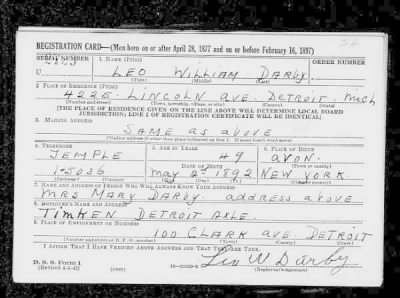 REGISTRATION CARD—(Men born on or after April 28, 1877 and on or before February 16, 1897)
SERIAL NUMBER 1. NAME (Print) ORDER NUMBER
U LEO WILLIAM DARBY
(First) (Middle) (Last)
2. PLACE OF RESIDENCE (Print)
4225 LINCOLN AVE DETROIT MICH
(Number and street) (Town, township, village, or city) (County) (State)
[THE PLACE OF RESIDENCE GIVEN ON THE LINE ABOVE WILL DETERMINE LOCAL BOARD
JURISDICTION; LINE 2 OF REGISTRATION CERTIFICATE WILL BE IDENTICAL]
3. MAILING ADDRESS
SAME AS ABOVE
(Mailing address if other than place indicated on line 2. If same insert word same)
4. TELEPHONE 5. AGE IN YEARS 6. PLACE OF BIRTH
TEMPLE 49 AVON
DATE OF BIRTH (Town or county)
1-5036 MAY 2 1892 NEW YORK
(Exchange) (Number) (Mo.) (Day) (Yr.) (State or country)
7. NAME AND ADDRESS OF PERSON WHO WILL ALWAYS KNOW YOUR ADDRESS
MRS MARY DARBY. ADDRESS ABOVE
8. EMPLOYER'S NAME AND ADDRESS
TIMKEN DETROIT AXLE.
9. PLACE OF EMPLOYMENT OR BUSINESS
100 CLARK AVE. DETROIT
(Number and street or R. F. D. number) (Town) (County) (State)
I AFFIRM THAT I HAVE VERIFIED ABOVE ANSWERS AND THAT THEY ARE TRUE.
D. S. S. Form 1 Leo W Darby
(Revised 4-1-42) (over) (Registrant's signature)